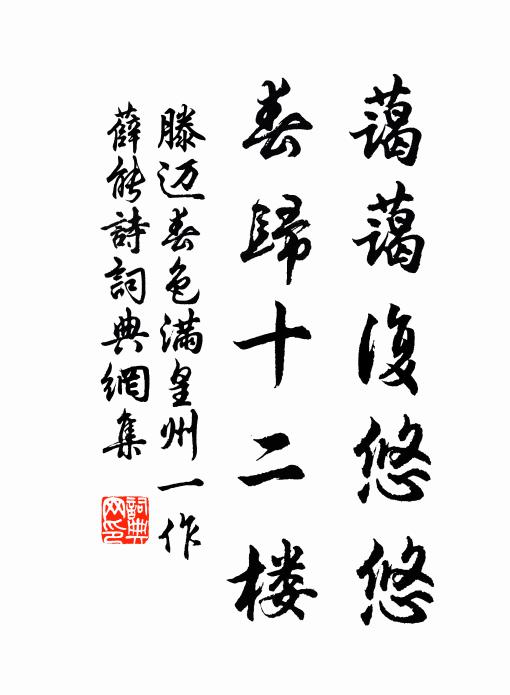 蔼蔼復悠悠
春歸十二楼
滕迈春色滿皇州一作
薛能詩詞典網集
詞典網印